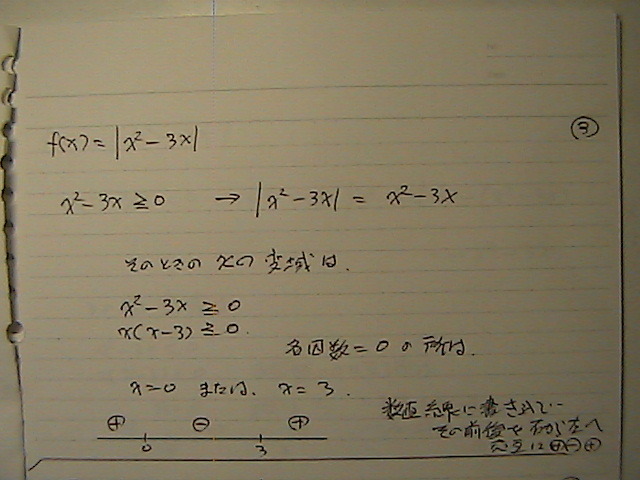 ③
f(x) = |x² - 3x|
x² - 3x ≧ 0 → |x² - 3x| = x² - 3x
そのときの xの変域は.
x² - 3x ≧ 0
x(x - 3) ≧ 0.
各因数 = 0 の所は.
x = 0 または. x = 3.
数直線に書き込んで…
その前後を右から左へ
交互に⊕⊖⊕
⊕ ⊖ ⊕
0 3